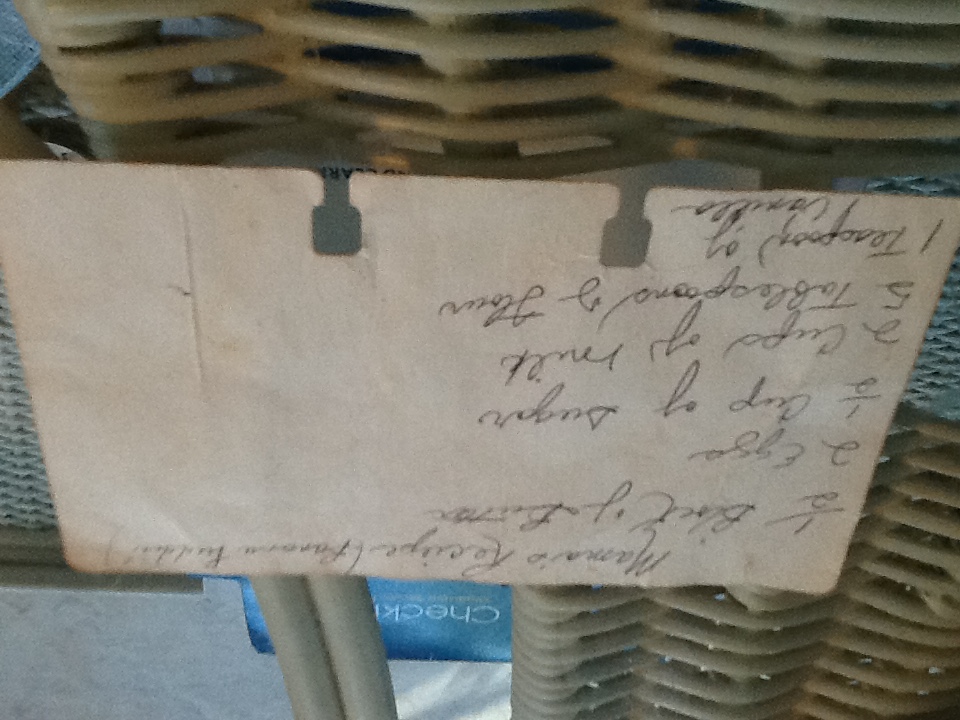 Mama's Recipe (Banana Puddin')
1/2 Block of Butter
2 Eggs
1/2 Cup of sugar
2 Cups of milk
5 Tablespoons of flour
1 Teaspoon of
Vanilla
Check
CLAR